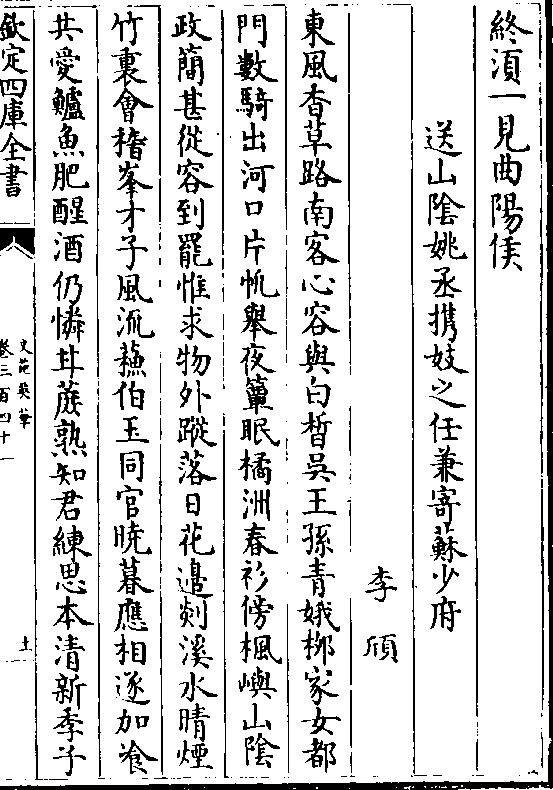 終湏一見曲陽侯
送山隂姚丞携妓之任兼寄蘇少府
李頎
東風香草路南客心容與白皙吳王孫青娥栁家女都
門數騎出河口片帆舉夜簟眠橘洲春衫傍楓嶼山隂
政簡甚從容到罷惟求物外蹤落日花邉剡溪水晴煙
竹裏會稽峯才子風流蘇伯玉同官曉暮應相逐加飡
共愛鱸魚肥醒酒仍憐甘蔗熟知君練思本清新季子
欽定四庫全書
文苑英華
卷三百四十一
土